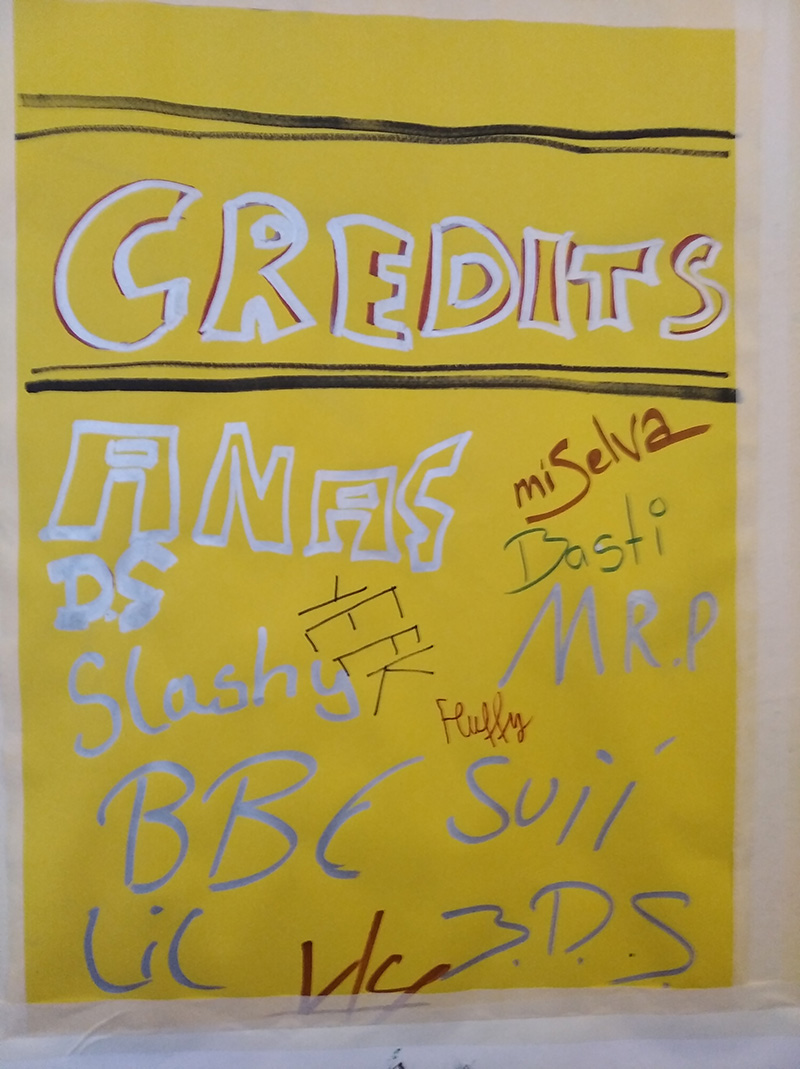 CREDITS
ANAS
miSelva
Basti
D.S
MR.P
Slashy
Fluffy
BBC
Suii
Lil
B.D.S.